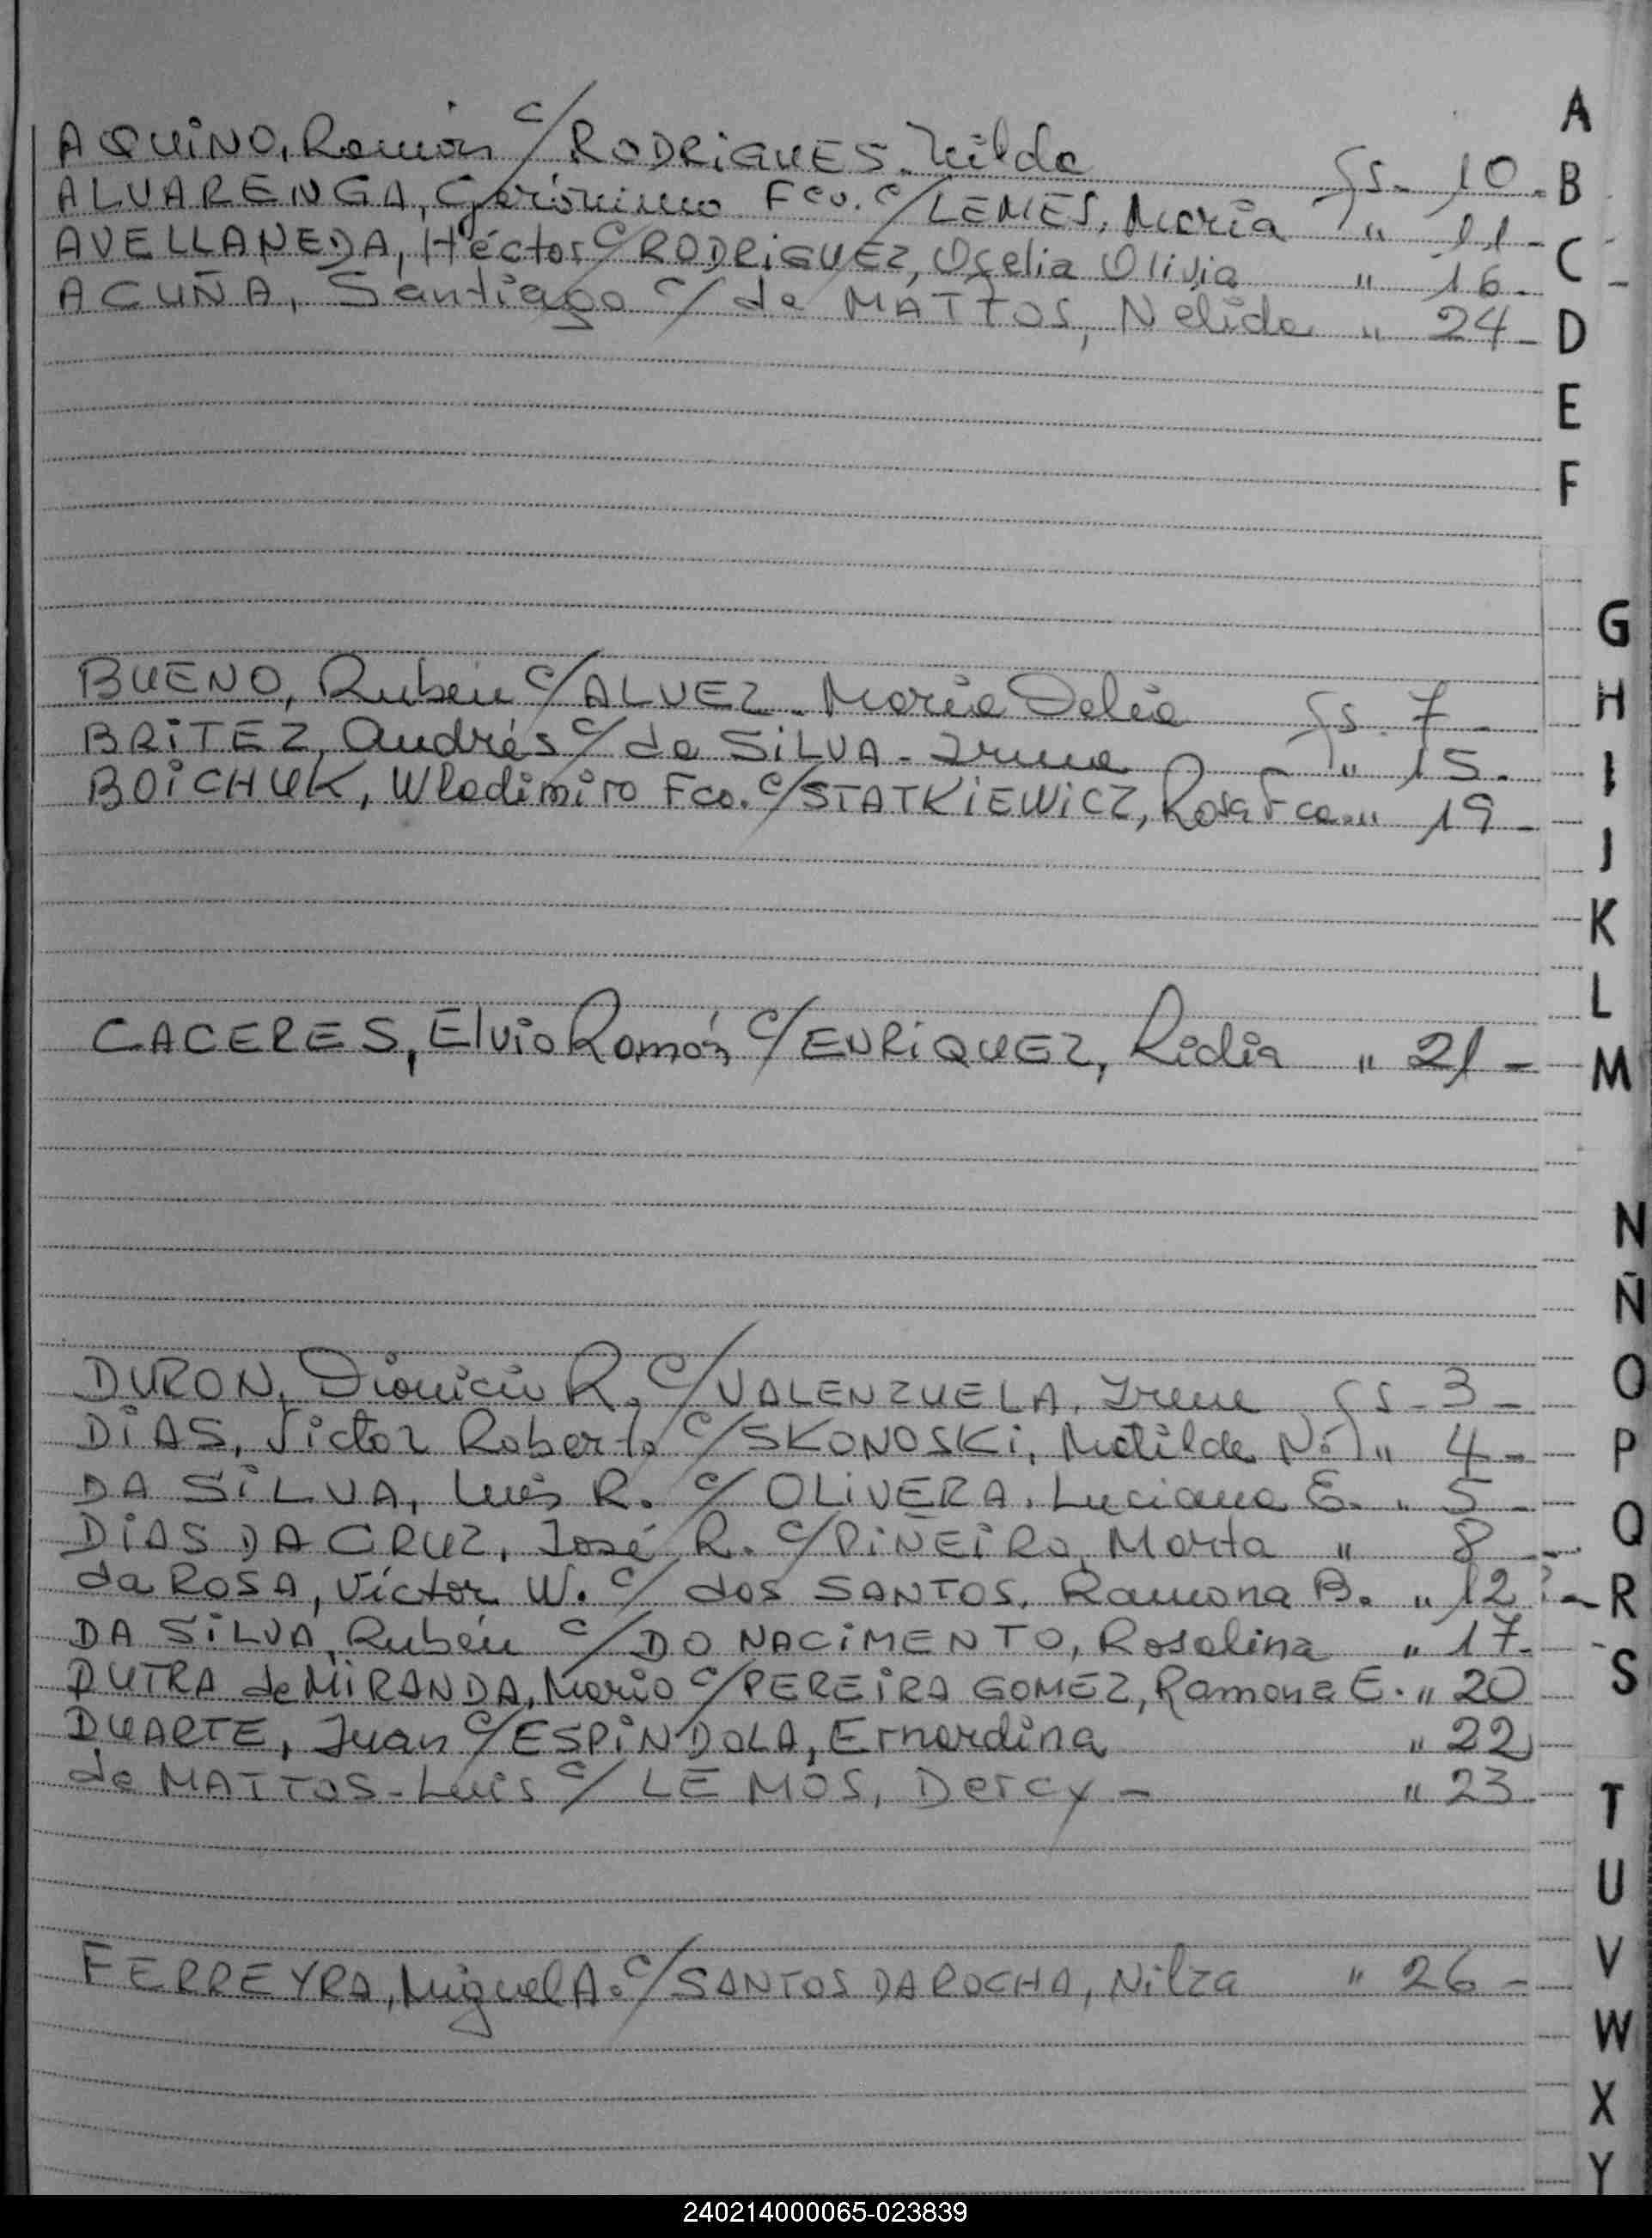 AQUiNO, Ramón c/ RODRiGUES. Hilda Fs. 10.
ALVARENGA, Gerónimo Fco. c/ LEMES, María " 11-
AVELLANEDA, Héctor c/ RODRiGUEZ, Ofelia Olivia " 16-
ACUÑA, Santiago c/ de MATTOS, Nélida " 24-
BUENO, Rubén c/ ALVEZ. María Delia Fs. 7-
BRiTEZ, Andrés c/ da SiLVA. Irene " 15.
BOiCHUK, Wladimiro Fco. c/ STATKiEWiCZ, Rosa Fca. " 19-
CACERES, Elvio Ramón c/ ENRiQUEZ, Lidia " 21-
DURON, Dionicio R. c/ VALENZUELA, Irene Fs. 3-
DiAS, Victor Roberto c/ SKONOSKi, Matilde N. " 4-
DA SiLVA, Luis R. c/ OLiVERA, Luciana E. " 5-
DiAS DA CRUZ, José R. c/ PiÑEiRO, Marta " 8
da ROSA, Víctor W. c/ dos SANTOS, Ramona B. " 12-
DA SiLVA, Rubén c/ DO NACiMENTO, Rosalina " 17-
DUTRA de MiRANDA, Mario c/ PEREiRA GOMEZ, Ramona E. " 20
DUARTE, Juan c/ ESPiNDOLA, Ernardina " 22
de MATTOS-Luis c/ LEMOS, Dercy- " 23.
FERREYRA, Miguel A. c/ SANTOS DA ROCHA, Nilza " 26-
A
B
C
D
E
F
G
H
I
J
K
L
M
N
Ñ
O
P
Q
R
S
T
U
V
W
X
Y
240214000065-023839